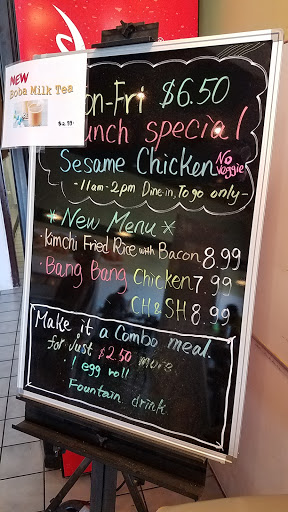 NEW
Boba Milk Tea
on-Fri $6.50
unch special
Sesame Chicken No veggie
-11am-2pm Dine-in, To go only-
* New Menu *
·Kimchi Fried Rice with Bacon 8.99
·Bang Bang Chicken 7.99
CH & SH 8.99
Make it a Combo meal.
for Just $2.50 more
1 egg roll
Fountain drink